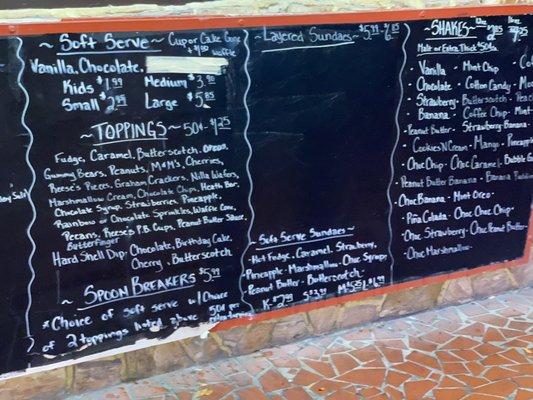 Soft Serve
Cup or Cake Cone
Waffle
Vanilla, Chocolate,
Kids $1.99 Medium $3.90
Small $2.99 Large $5.85
~Toppings~ 50¢-$1.25
Fudge, Caramel, Butterscotch, Oreos,
Gummy Bears, Peanuts, M&M's, Cherries,
Reese's Pieces, Graham Crackers, Nilla Wafers,
Marshmallow Cream, Chocolate Chips, Heath Bar,
Chocolate Syrup, Strawberries, Pineapple,
Rainbow or Chocolate Sprinkles, Waffle Cone,
Pecans, Reese's P.B. Cups, Peanut Butter Sauce,
Butterfinger
Hard Shell Dip: Chocolate, Birthday Cake,
Cherry, Butterscotch
~Spoon Breakers $5.99
* Choice of soft serve w/ choice
of 2 toppings listed above
50¢ per
Layered Sundaes $5.99-$6.85
Soft Serve Sundaes
Hot Fudge, Caramel, Strawberry,
Pineapple, Marshmallow, Choc Syrup,
Peanut Butter, Butterscotch
K $2.99 S $3.99 M $5.25 L $6.99
~Shakes~ 12oz 16oz
Malt or Extra Thick 50¢
Vanilla · Mint Chip
Chocolate · Cotton Candy
Strawberry · Butterscotch
Banana · Coffee Chip
Peanut Butter · Strawberry Banana
Cookies N Cream · Mango
Choc Chip · Choc Caramel · Bubble
Peanut Butter Banana · Banana
Choc Banana · Mint Oreo
Piña Colada · Choc Choc Chip
Choc Strawberry · Choc Peanut Butter
Choc Marshmallow